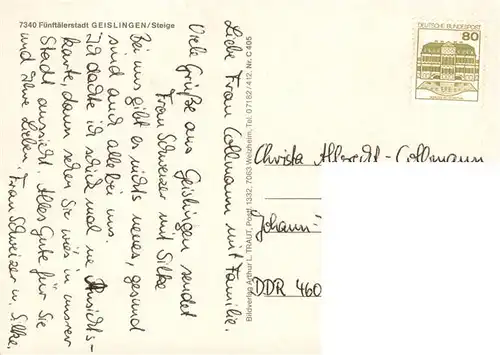 7340 Fünftälerstadt GEISLINGEN/Steige
Liebe Frau Collmann mit Familie.
Viele Grüße aus Geislingen sendet
Frau Schweizer mit Silke
Bei uns gibt es nichts neues, gesund
sind auch alle bei uns.
Ich dachte ich schick mal ne Ansichts-
karte, dann sehen Sie wie's in unserer
Stadt aussieht. Alles Gute für Sie
und Ihre Lieben, Frau Schweizer u. Silke.
Bildverlag Arthur L. TRAUT, Postf. 1332, 7063 Welzheim, Tel. 07182/412, Nr. C 405
DEUTSCHE BUNDESPOST
80
Christa Albrecht-Collmann
Johann
DDR 460